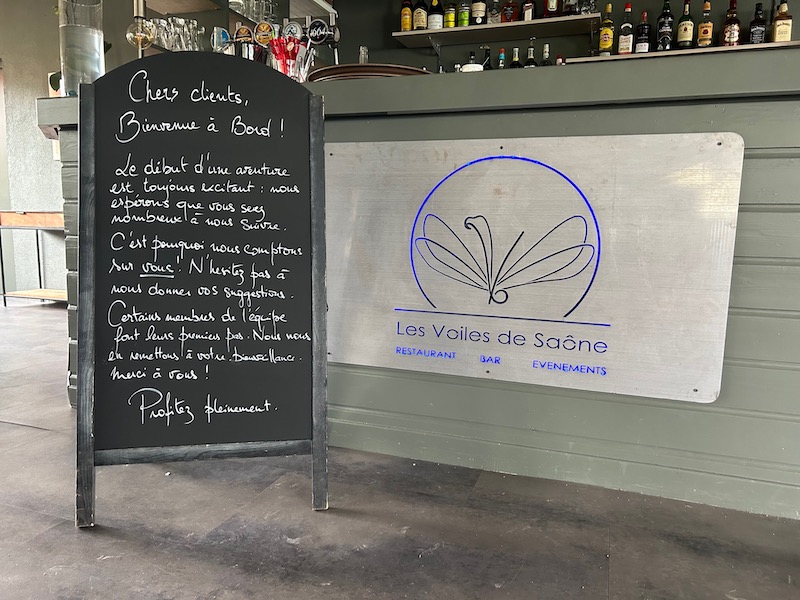 Chers clients,
Bienvenue à Bord !
Le début d'une aventure
est toujours excitant : nous
espérons que vous serez
nombreux à nous suivre.
C'est pourquoi nous comptons
sur vous ! N'hesitez pas à
nous donner vos suggestions.
Certains membres de l'équipe
font leurs premiers pas. Nous nous
en remettons à votre bienveillance.
merci à vous !
Profitez pleinement.
Les Voiles de Saône
RESTAURANT BAR EVENEMENTS